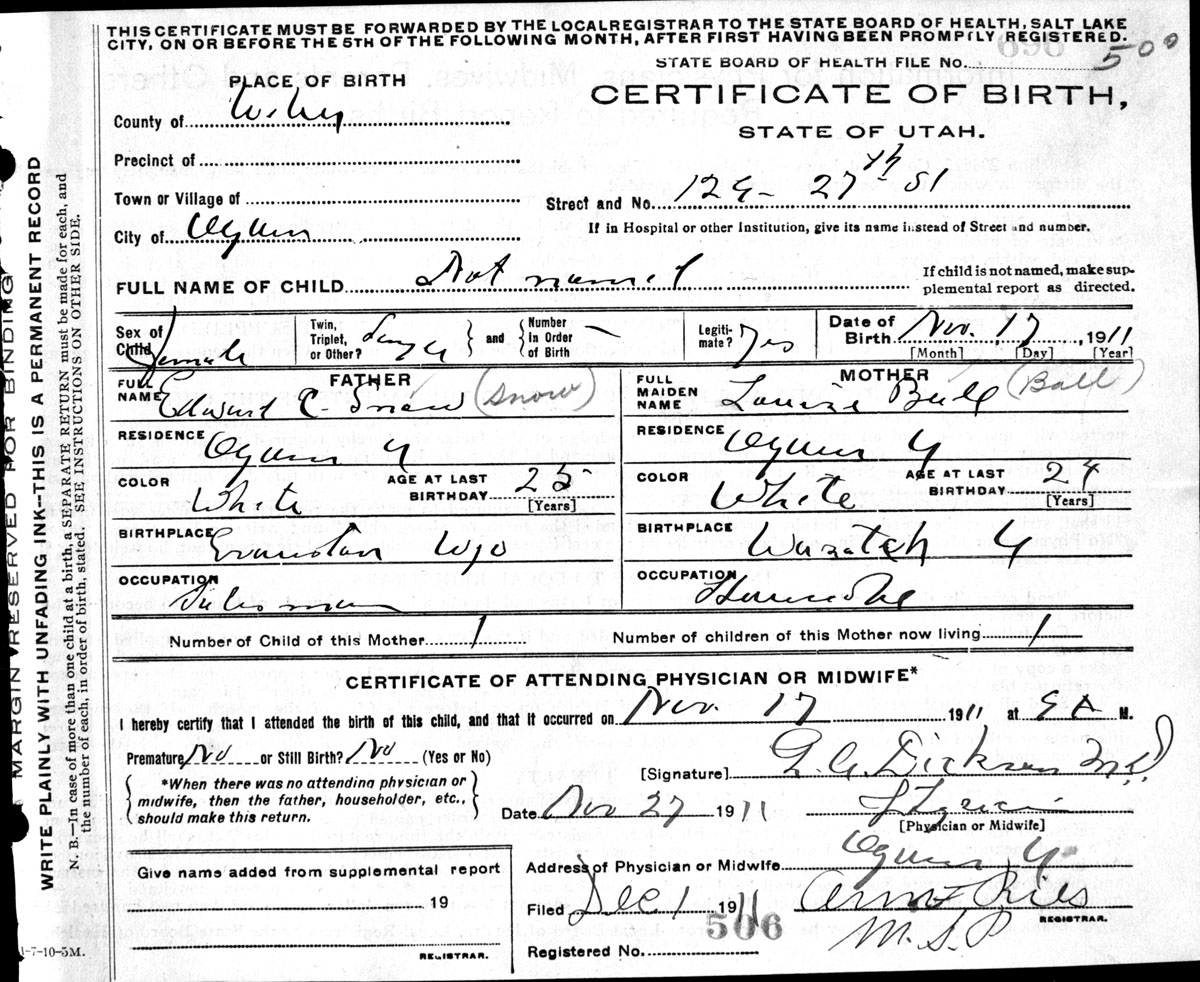 THIS CERTIFICATE MUST BE FORWARDED BY THE LOCAL REGISTRAR TO THE STATE BOARD OF HEALTH, SALT LAKE
CITY, ON OR BEFORE THE 5TH OF THE FOLLOWING MONTH, AFTER FIRST HAVING BEEN PROMPTLY REGISTERED.
STATE BOARD OF HEALTH FILE NO. 500
PLACE OF BIRTH
CERTIFICATE OF BIRTH,
STATE OF UTAH.
County of Weber
Precinct of
Town or Village of
Street and No. 129- 27th St
City of Ogden
If in Hospital or other Institution, give its name instead of Street and number.
FULL NAME OF CHILD Not named
If child is not named, make supplemental report as directed.
Sex of Child Female
Twin, Triplet, or Other? Single and Number in Order of Birth
Legitimate? Yes
Date of Birth Nov. 17, 1911
[Month] [Day] [Year]
FATHER
MOTHER
FULL NAME Edward C. Snow (Snow)
FULL MAIDEN NAME Louise Ball (Ball)
RESIDENCE Ogden U
RESIDENCE Ogden U
COLOR White AGE AT LAST BIRTHDAY 25 [Years]
COLOR White AGE AT LAST BIRTHDAY 24 [Years]
BIRTHPLACE Evanston Wyo
BIRTHPLACE Wasatch U
OCCUPATION Salesman
OCCUPATION Housewife
Number of Child of this Mother 1
Number of children of this Mother now living 1
CERTIFICATE OF ATTENDING PHYSICIAN OR MIDWIFE*
I hereby certify that I attended the birth of this child, and that it occurred on Nov. 17 1911 at 9 A M.
Premature No or Still Birth? No (Yes or No)
*When there was no attending physician or
midwife, then the father, householder, etc.,
should make this return.
[Signature] Dickson M.D.
Date Nov 27 1911
[Physician or Midwife]
Address of Physician or Midwife Ogden U
Give name added from supplemental report
19
REGISTRAR.
Filed Dec 1 1911
REGISTRAR.
506
Registered No.
1-7-10-5M.
MARGIN RESERVED FOR BINDING
WRITE PLAINLY WITH UNFADING INK--THIS IS A PERMANENT RECORD
N. B.—In case of more than one child at a birth, a SEPARATE RETURN must be made for each, and
the number of each, in order of birth, stated. SEE INSTRUCTIONS ON OTHER SIDE.